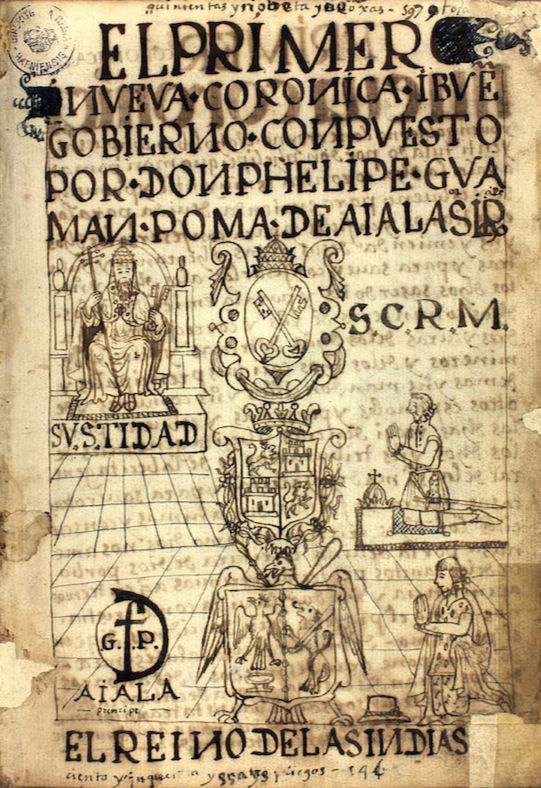 quinientas y nobeta y ciete oxas - 597 oxas
EL PRIMER
NVEVA·CORONICA·IBVE
GOBIERNO·CONPVESTO
POR·DONPHELIPE·GVA
MAN·POMA·DEAIALASIR
S.C.R.M.
SV.S.TIDAD
G.P.
AIALA
principe
EL REINO DE LAS INDIAS
ciento y pliegos - 146